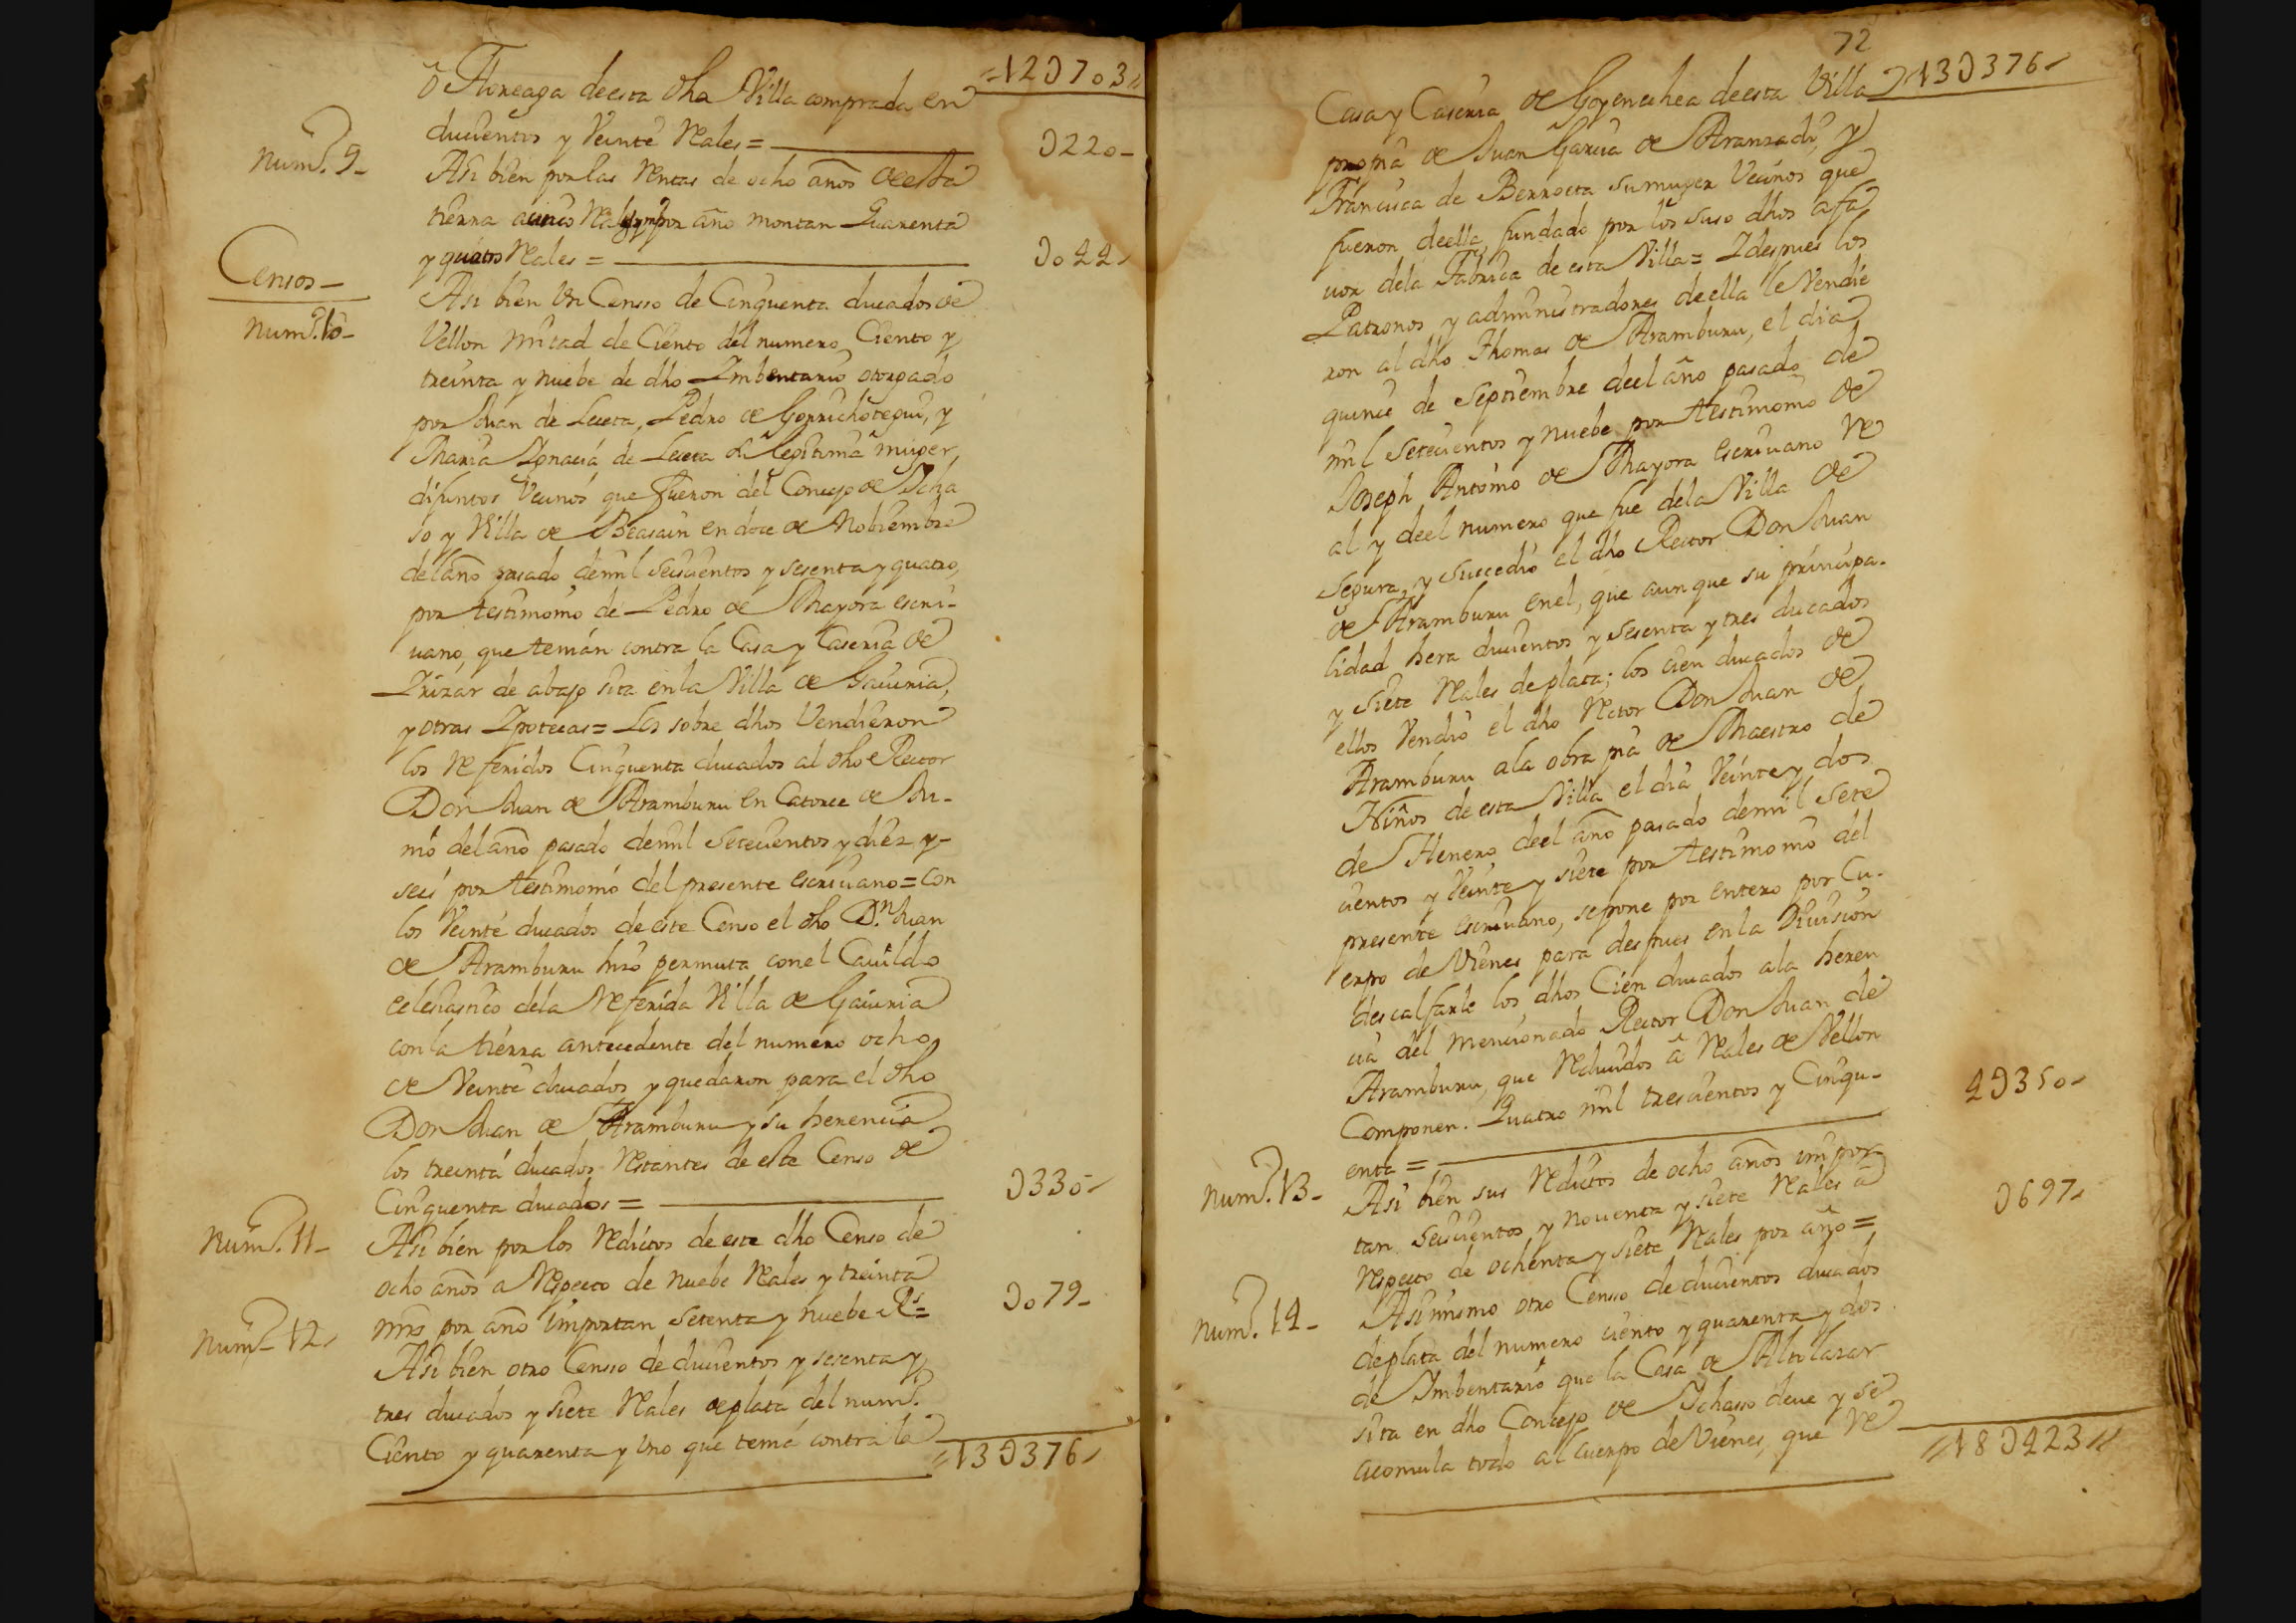 12U703
ô Floreaga de esta dha Villa comprada en
ducientos y Veinte Reales =
U220
Num.º 9
Asi bien por las Rentas de ocho años de esta
tierra a cinco por año montan Quarenta
y quatro Reales =
U044
Censos
Num.º 10
Asi bien Un Censso de Cinquenta ducados de
Vellon mitad de Ciento del numero Ciento y
treinta y nuebe de dho Imbentario otorgado
por Juan de Leceta, Pedro de Gorrichotegui, y
Maria Ignacia de Leceta su legitima muger,
difuntos Vecinos que fueron del Concejo de Icha
so y Villa de Beasain en doce de Nobiembre
del año pasado de mil Seiscientos y sesenta y quatro,
por testimonio de Pedro de Mayora escri-
uano, que tenian contra la Casa y Caseria de
Irizar de abajo sita en la Villa de Gaviria,
y otras Ipotecas = Los sobre dhos Vendieron
los Referidos Cinquenta ducados al dho Rector
Don Juan de Aramburu en Catorce de Ju-
nio del año pasado de mil Setecientos y diez y
seis por testimonio del presente escriuano = con
los Veinte ducados de este Censo el dho D.n Juan
de Aramburu hizo permuta con el Cauildo
eclesiastico de la Referida Villa de Gauiria
con la tierra antecedente del numero ocho
de Veinte ducados y quedaron para el dho
Don Juan de Aramburu y su herencia
los treinta ducados Restantes de este Censo de
Cinquenta ducados =
U330
Num.º 11
Asi bien por los Reditos de este dho Censo de
ocho años a Respecto de nuebe Reales y treinta
mrs por año importan setenta y nuebe Rs =
U079
Num.º 12
Asi bien otro Censso de ducientos y sesenta y
tres ducados y siete Reales de plata del num.º
Ciento y quarenta y Uno que tenia contra la
13U376
72
13U376
Casa y Caseria de Goyenechea de esta Villa
propia de Juan Garcia de Aranzadi, y
Francisca de Berroeta su muger Vecinos que
fueron de ella, fundado por los suso dhos a fa
uor de la Fabrica de esta Villa = I despues los
Patronos y administradores de ella le Vendie
ron al dho Thomas de Aramburu, el dia
quince de Septiembre de el año pasado de
mil Setecientos y nuebe por testimonio de
Joseph Antonio de Mayora escriuano Re
al y de el numero que fue de la Villa de
Segura, y succedio el dho Rector Don Juan
de Aramburu en el, que aunque su principa-
lidad hera ducientos y sesenta y tres ducados
y siete Reales de plata; los cien ducados de
ellos Vendio el dho Retor Don Juan de
Aramburu a la obra pia de Maestro de
Niños de esta Villa el dia Veinte y dos
de Henero de el año pasado de mil Sete
cientos y Veinte y siete por testimonio del
presente escriuano, se pone por entero por Cu-
erpo de Vienes para despues en la Diuision
descalfarle los dhos Cien ducados a la heren
cia del mencionado Rector Don Juan de
Aramburu, que Reducidos â Reales de Vellon
Componen. Quatro mil trescientos y Cinqu-
enta =
4U350
Num.º 13
Asi bien sus Reditos de ocho años impor
tan seiscientos y nouenta y siete Reales a
Respecto de ochenta y siete Reales por año =
U697
Num.º 14
Asimismo otro Censso de ducientos ducados
de plata del numero ciento y quarenta y dos
de Imbentario que la Casa de Altolazar
sita en dho Concejo de Ichasso deue y se
acomula todo al cuerpo de Vienes, que Re
18U423